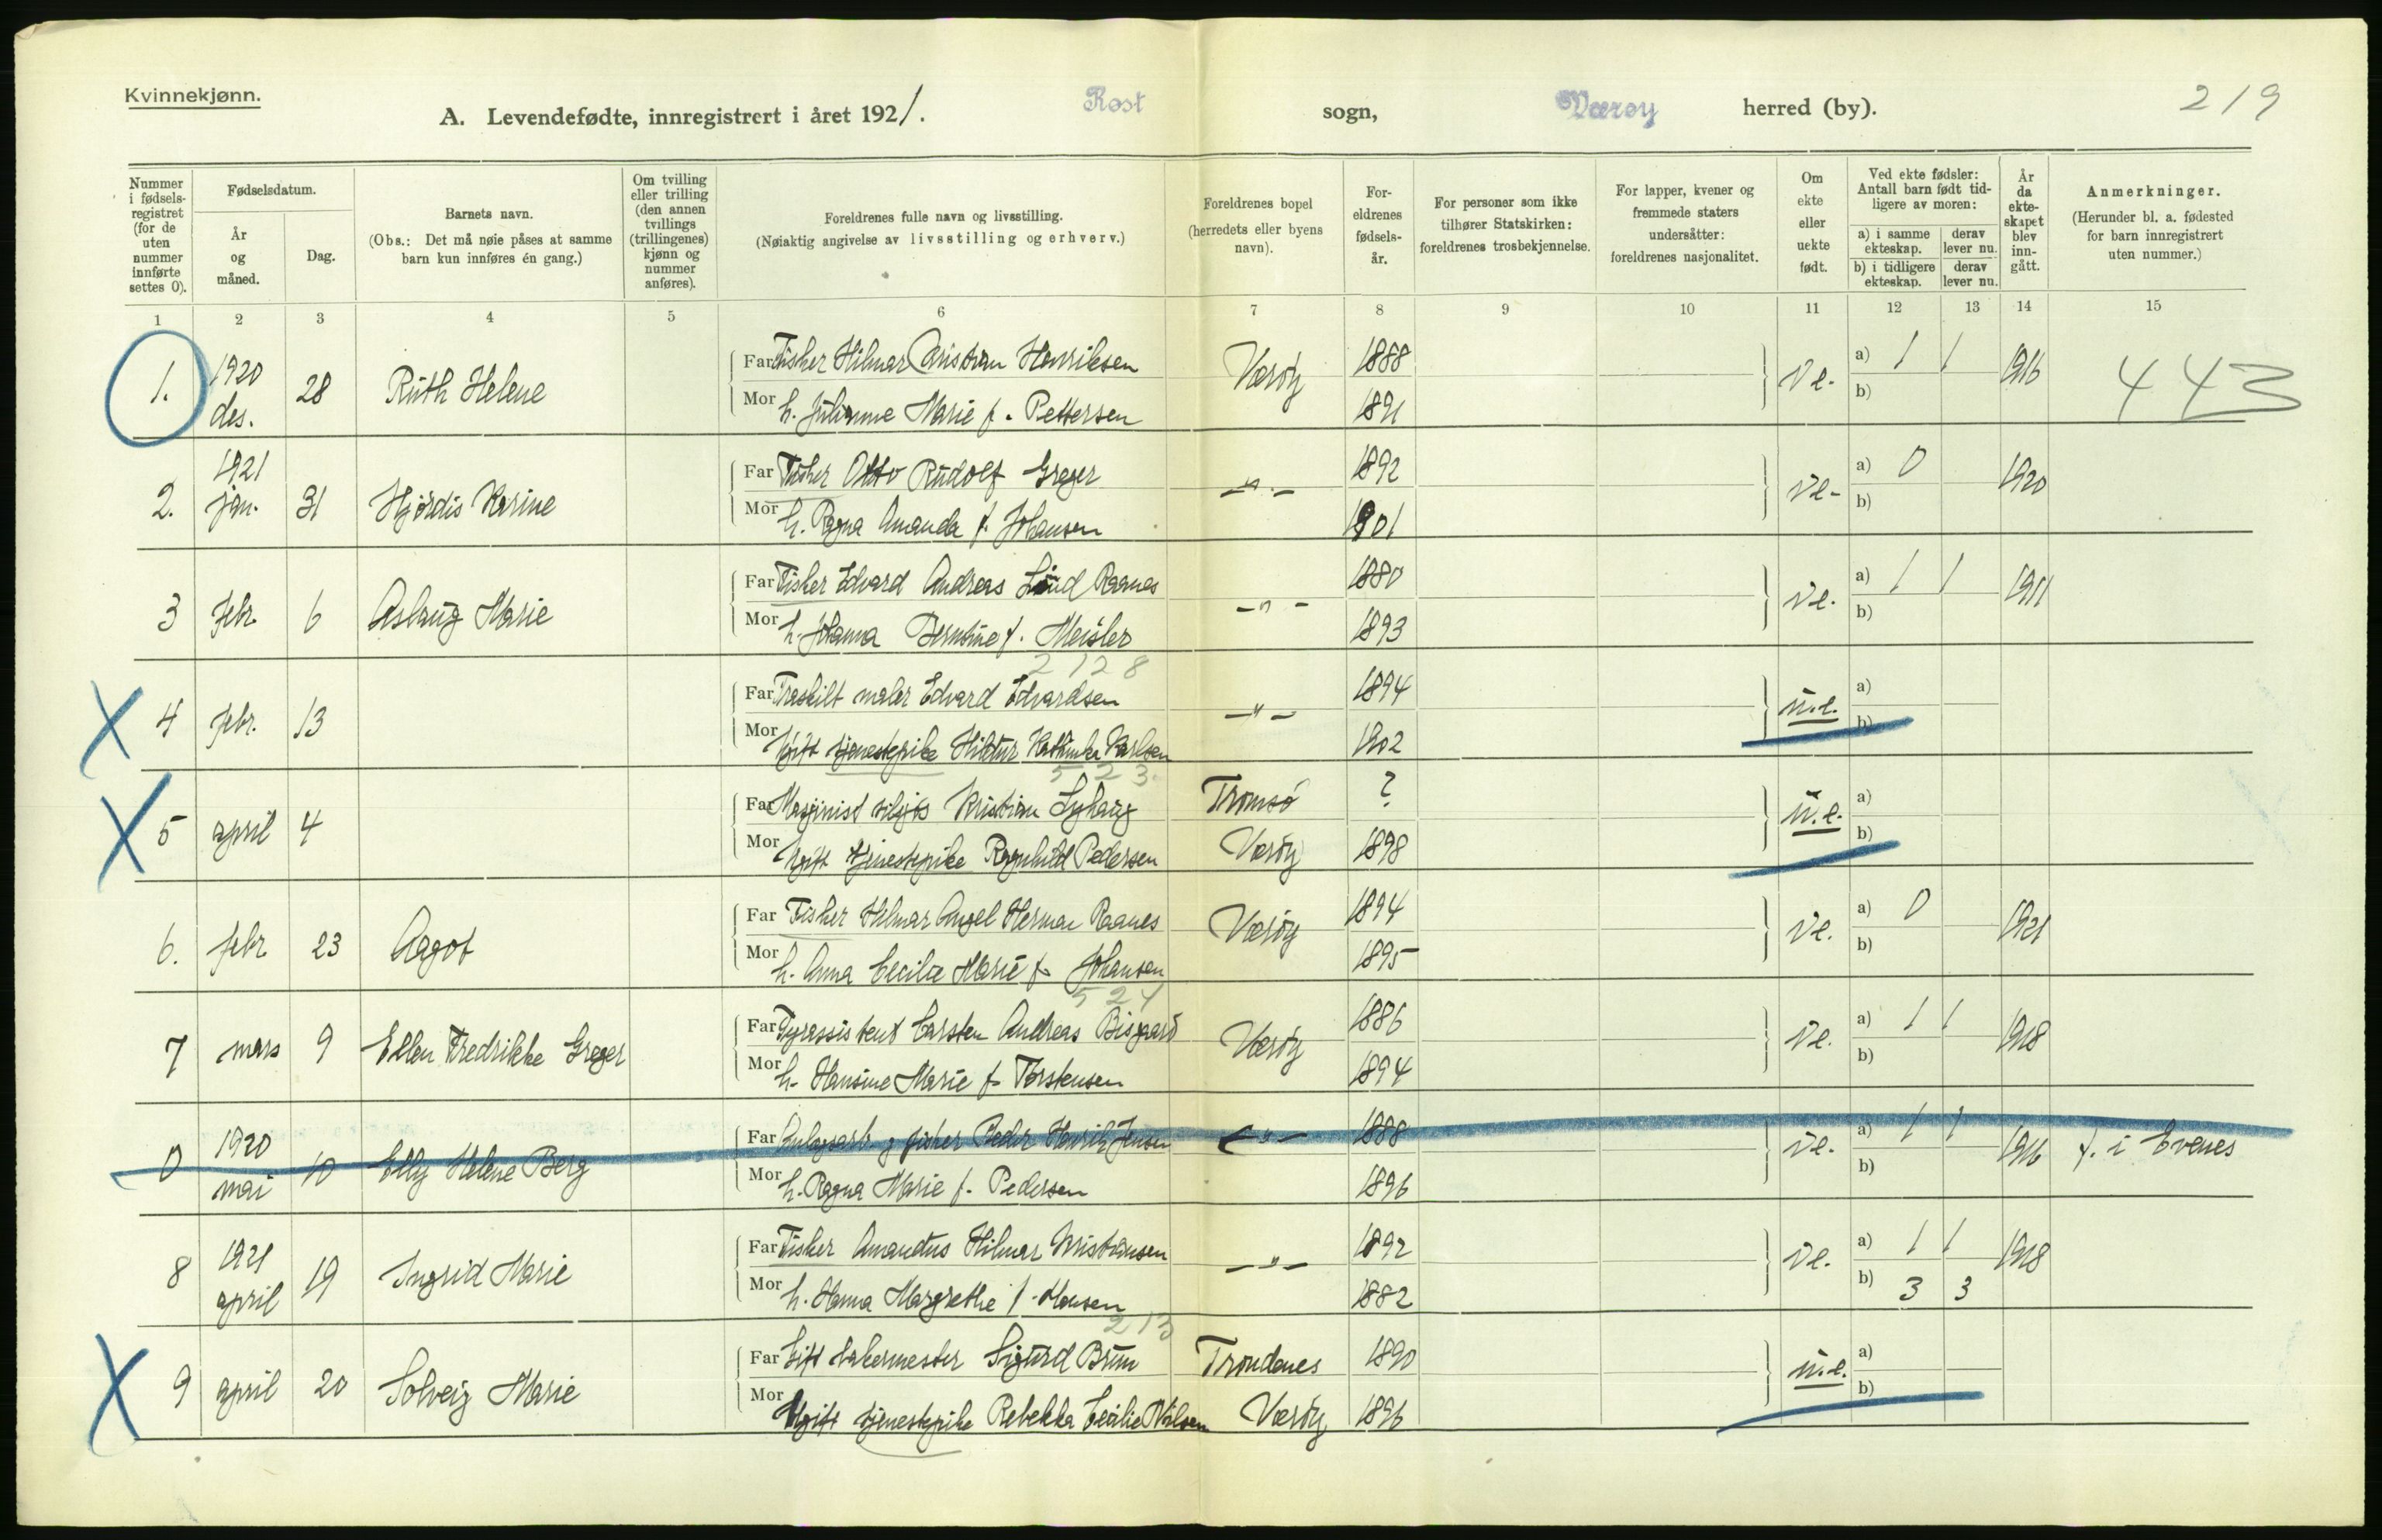 Kvinnekjønn.
A. Levendefødte, innregistrert i året 1921. Røst sogn, Værøy herred (by). 219
Nummer i fødsels-registret (for de uten nummer innførte settes 0).
Fødselsdatum.
År og måned.
Dag.
Barnets navn.
(Obs.: Det må nøie påses at samme barn kun innføres én gang.)
Om tvilling eller trilling (den annen tvillings (trillingenes) kjønn og nummer anføres).
Foreldrenes fulle navn og livsstilling.
(Nøiaktig angivelse av livsstilling og erhverv.)
Foreldrenes bopel (herredets eller byens navn).
For-eldrenes fødsels-år.
For personer som ikke tilhører Statskirken: foreldrenes trosbekjennelse.
For lapper, kvener og fremmede staters undersåtter: foreldrenes nasjonalitet.
Om ekte eller uekte født.
Ved ekte fødsler: Antall barn født tid-ligere av moren:
a) i samme ekteskap. derav lever nu.
b) i tidligere ekteskap. derav lever nu.
År da ekte-skapet blev inn-gått.
Anmerkninger.
(Herunder bl. a. fødested for barn innregistrert uten nummer.)
1 2 3 4 5 6 7 8 9 10 11 12 13 14 15
1. 1920 des. 28 Ruth Helene Far Fisker Hilmar Cristian Henriksen Værøy 1888 ve. a) 1 1 1916 443
Mor h. Julianne Marie f. Pettersen 1891 b)
2. 1921 jan. 31 Hjørdis Karine Far Fisker Otto Rudolf Greger -"- 1892 ve- a) 0 1920
Mor h. Ragna Amanda f. Johansen 1901 b)
3 febr. 6 Aslaug Marie Far Fisker Edvard Andreas Lind Raanes -"- 1880 ve. a) 1 1 1911
Mor h. Johanna Berntine f. Meisler 1893 b)
2128
4 febr. 13 Far Fraskilt maler Edvard Edvardsen -"- 1894 u.e. a)
Mor Ugift tjenestepike Hildur Karlsen 1902 b)
523
5 april 4 Far Maskinist Kristian Lyhaug Tromsø ? u.e. a)
Mor Ugift tjenestepike Ragnhild Pedersen Værøy 1898 b)
6. febr 23 Aagot Far Fisker Hilmar Angel Herman Raanes Værøy 1894 ve. a) 0 1921
Mor h. Anna Cecilie Marie f. Johansen 1895 b)
524
7 mars 9 Ellen Fredrikke Greger Far Fyrassistent Carsten Andreas Bisgaard Værøy 1886 ve. a) 1 1 1918
Mor h. Hansine Marie f. Torstensen 1894 b)
0 1920 mai 10 Elly Helene Berg Far Anlegsarb. og fisker Peder Henrik Jensen -"- 1888 ve. a) 1 1 1916 f. i Evenes
Mor h. Ragna Marie f. Pedersen 1896 b)
8 1921 april 19 Ingrid Marie Far Fisker Amandus Hilmar Kristiansen -"- 1892 ve. a) 1 1 1918
Mor h. Hanna Margrethe f. Hansen 1882 b) 3 3
213
9 april 20 Solveig Marie Far Gift bakermester Sigurd Brun Trondenes 1890 u.e. a)
Mor Ugift tjenestepike Rebekka Cecilie Nilsen Værøy 1896 b)